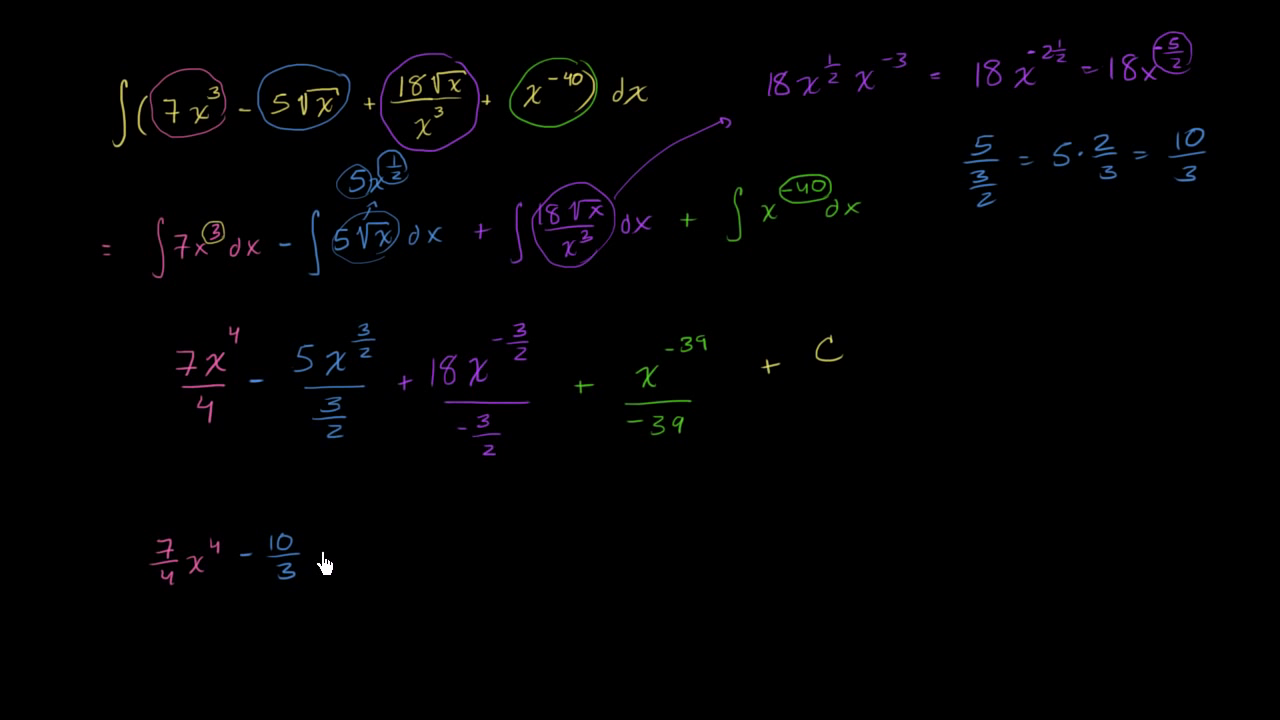 ∫(7x³ - 5√x + 18√x/x³ + x⁻⁴⁰) dx
18x^(1/2) x⁻³ = 18x^(-2 1/2) = 18x^(-5/2)
5/(3/2) = 5·2/3 = 10/3
5x^(1/2)
= ∫7x³dx - ∫5√x dx + ∫18√x/x³ dx + ∫x⁻⁴⁰dx
7x⁴/4 - 5x^(3/2)/(3/2) + 18x^(-3/2)/(-3/2) + x⁻³⁹/-39 + C
7/4 x⁴ - 10/3